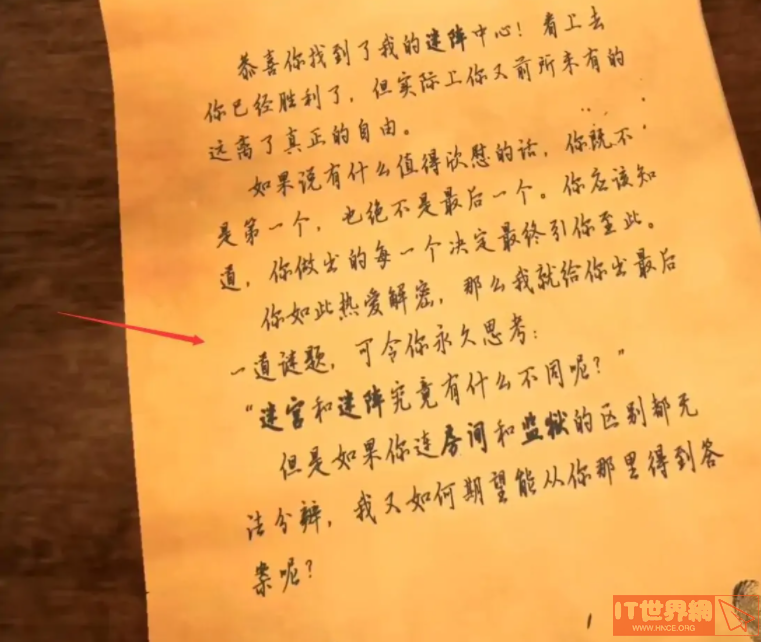 恭喜你找到了我的迷阵中心！看上去
你已经胜利了，但实际上你又前所未有的
远离了真正的自由。
如果说有什么值得欣慰的话，你既不
是第一个，也绝不是最后一个。你应该知
道，你做出的每一个决定最终引你至此。
你如此热爱解密，那么我就给你出最后
一道谜题，可令你永久思考：
“迷宫和迷阵究竟有什么不同呢？”
但是如果你连房间和监狱的区别都无
法分辨，我又如何期望能从你那里得到答
案呢？
IT世界網
WWW.HNCE.ORG